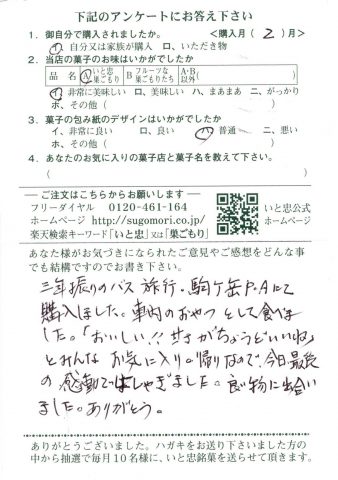 下記のアンケートにお答え下さい
1. 御自分で購入されましたか。 <購入月( 2 )月>
イ、自分又は家族が購入 ロ、いただき物
2. 当店の菓子のお味はいかがでしたか
品 名 A いと忠巣ごもり B フルーツな巣ごもりたち A・B以外
イ、非常に美味しい ロ、美味しい ハ、まあまあ ニ、がっかり
ホ、その他( )
3. 菓子の包み紙のデザインはいかがでしたか
イ、非常に良い ロ、良い ハ、普通 ニ、悪い
ホ、その他( )
4. あなたのお気に入りの菓子店と菓子名を教えて下さい。
( )
ご注文はこちらからお願いします
フリーダイヤル 0120-461-164
ホームページ http://sugomori.co.jp/
楽天検索キーワード「いと忠」又は「巣ごもり」
いと忠公式
ホームページ
あなた様がお気づきになられたご意見やご感想をどんな事
でも結構ですのでお書き下さい。
三年振りのバス旅行。駒ヶ岳P.Aにて
購入しました。車内のおやつとして食べま
した。「おいしい!!甘さがちょうどいいね」
とみんなお気に入り。帰りなので、今日最後
の感動ではしゃぎました。良い物に出会い
ました。ありがとう。
ありがとうございました。ハガキをお送り下さいました方の
中から抽選で毎月10名様に、いと忠銘菓を送らせて頂きます。